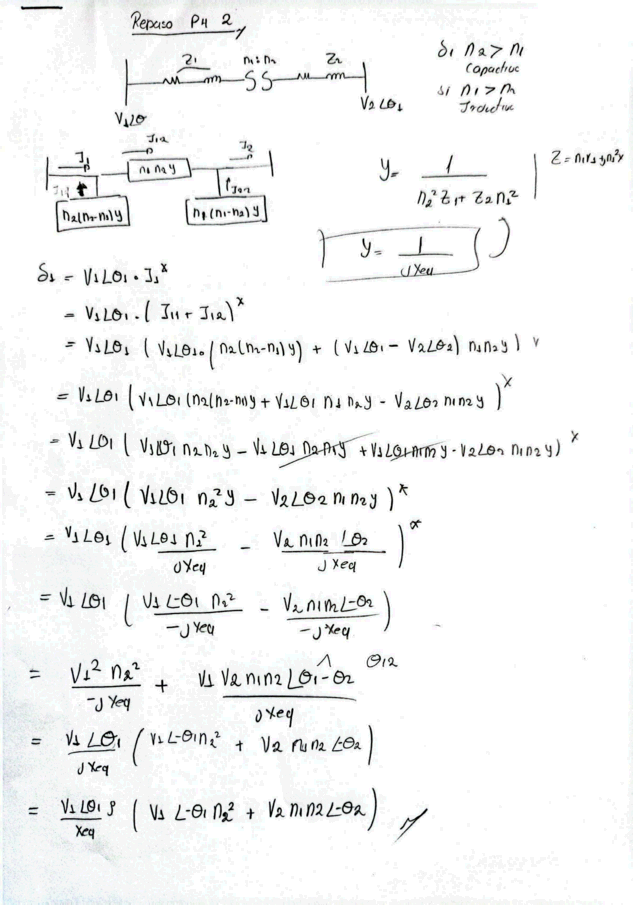 Repaso P4 2
Z1 n1:n2 Z2
V1∠0 V2∠θ1
δi n2 > n1
Capacitivo
si n1 > n2
Inductivo
I1 I12 I2
n1 n2 y
n2(n2-n1)y n1(n1-n2)y
y = 1 / (n2² Z1 + Z2 n1²)
y = 1 / jXeq
S1 = V1∠θ1 · I1*
= V1∠θ1 · (I11 + I12)*
= V1∠θ1 (V1∠θ1 · (n2(n2-n1)y) + (V1∠θ1 - V2∠θ2) n1n2y)
= V1∠θ1 (V1∠θ1 (n2(n2-n1)y + V1∠θ1 n1 n2y - V2∠θ2 n1n2y)*
= V1∠θ1 (V1∠θ1 n2n2y - V1∠θ1 n2n1y + V1∠θ1n1n2y - V2∠θ2 n1n2y)*
= V1∠θ1 (V1∠θ1 n2²y - V2∠θ2 n1n2y)*
= V1∠θ1 (V1∠θ1 n2² / jXeq - V2 n1n2 ∠θ2 / jXeq)*
= V1∠θ1 (V1∠-θ1 n2² / -jXeq - V2 n1n2∠-θ2 / -jXeq)
= V1² n2² / -jXeq + V1 V2 n1n2 ∠θ1-θ2 / jXeq θ12
= V1∠θ1 / jXeq (V1∠-θ1n2² + V2 n1n2 ∠-θ2)
= V1∠θ1 j / Xeq (V1∠-θ1 n2² + V2 n1n2∠-θ2)